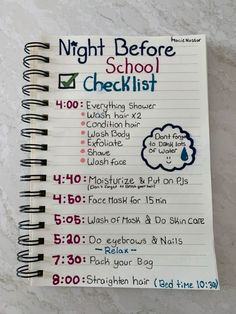 Night Before
School
Checklist
4:00: Everything Shower
• Wash hair x2
• Condition hair
• Wash Body
• Exfoliate
• Shave
• Wash face
Dont forget
to Drink lots
of Water
4:40: Moisturize & Put on PJs
(Don't forget to Brush your hair)
4:50: Face Mask for 15 min
5:05: Wash of Mask & Do Skin Care
5:20: Do eyebrows & Nails
- Relax -
7:30: Pack your Bag
8:00: Straighten hair (Bed time 10:30)